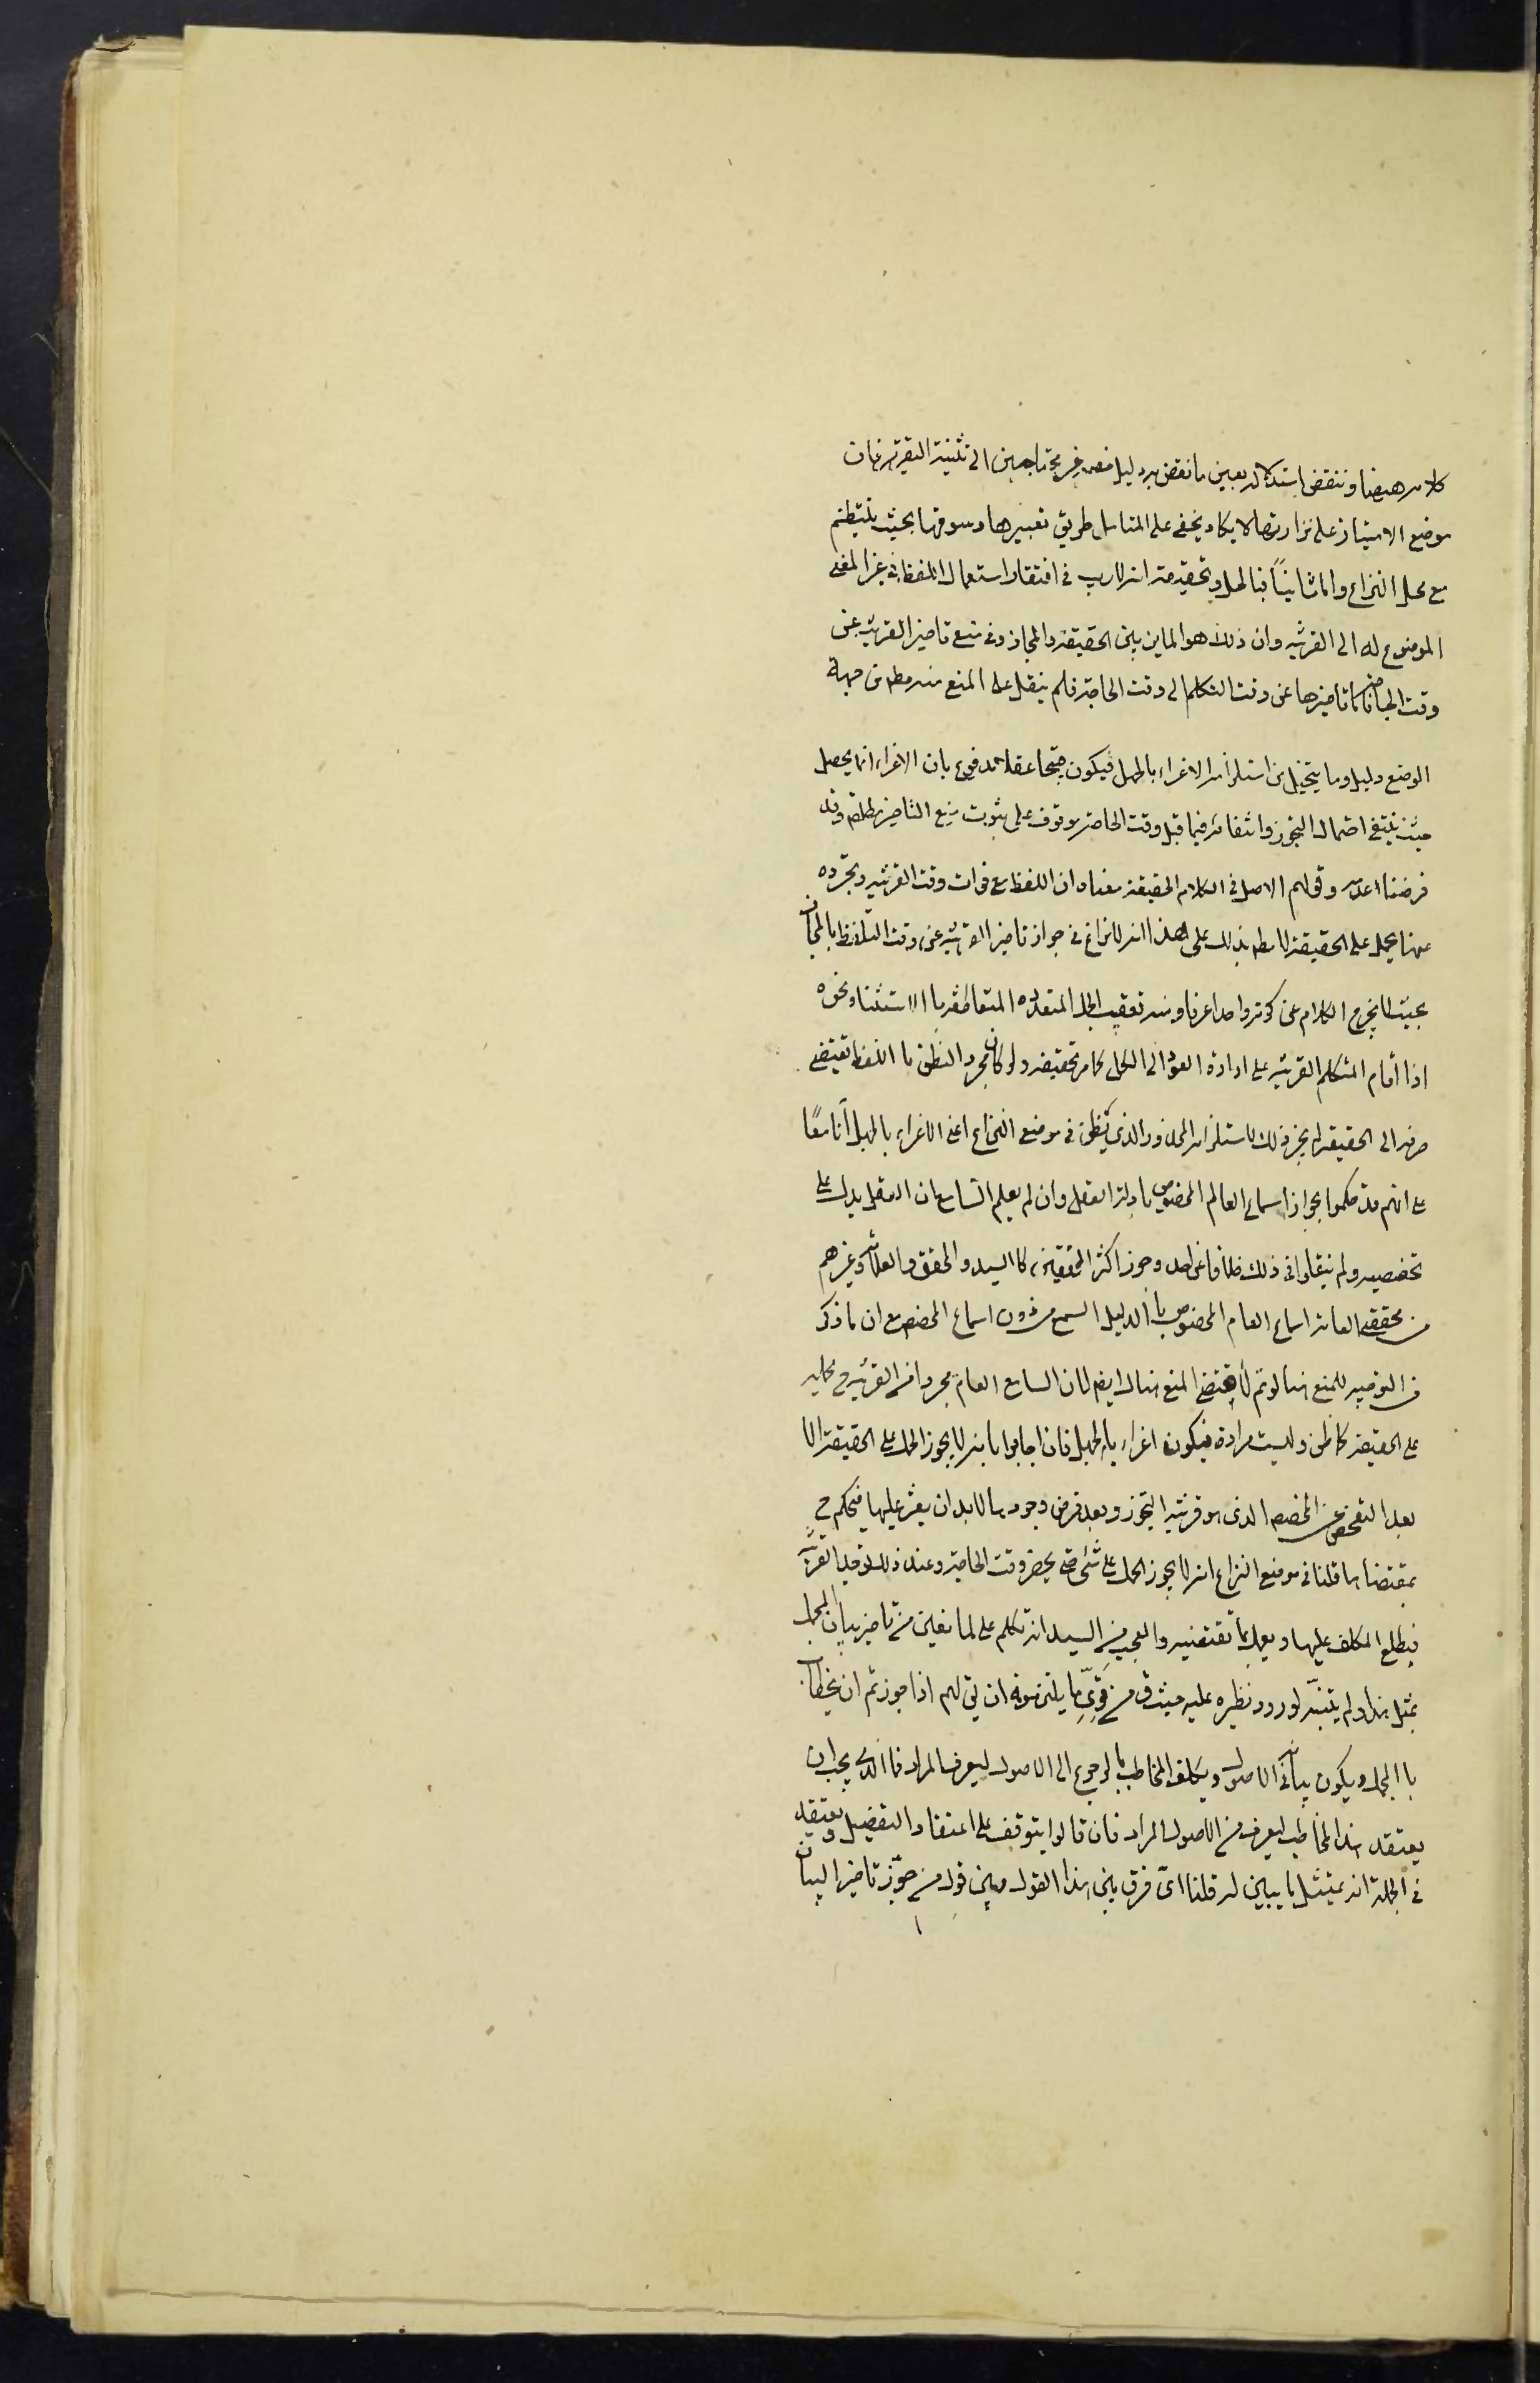 كلامه هيهنا وننقض استدلاله بعين ما نقض به دليل خصمه غير محتاجين الى تثنية التقرير فان
موضع الامتياز على نزارتها لا يكاد يخفى على المتامل طريق تغييرها وسوقها بحيث ينتظم
مع محل النزاع واما ثانيًا فبالحل وتحقيقه انه لا ريب في افتقار استعمال اللفظ في غير المعنى
الموضوع له الى القرينة وان ذلك هو الماين بين الحقيقة والمجاز وفي منع تاخير القرينة عن
وقت الحاجة فاما تاخيرها عن وقت التكلم الى وقت الحاجة فلم ينقل على المنع منه مطم من جهة
الوضع دليل وما يتخيل من استلزامه الاغراء بالجهل فيكون قبيحا عقلا مدفوع بان الاغراء انما يحصل
حيث ينتفى احتمال التجوز وانتفائه فيما قبل وقت الحاجة موقوف على ثبوت منع التاخير مطلقا وقد
فرضنا عدمه وقولهم الاصل في الكلام الحقيقة معناه ان اللفظ مع فوات وقت القرينة وتجرده
عنها يحمل على الحقيقة لا مطم يدلك على هذا انه لا نزاع في جواز تاخير القرينة عن وقت التلفظ بالمجاز
بحيث لا يخرج الكلام عن كونه واحدا عرفا ومنه تعقيب الجمل المتعدده المتعاطفه با الاستثنا ونحوه
اذا أقام المتكلم القرينة على ارادة العود الى الكل كما مر تحقيقه ولو كان مجرد النطق با اللفظ يقتضى
صرفه الى الحقيقه لم يجز ذلك لاستلزامه المحذور الذي يظن في موضع النزاع اعنى الاغراء بالجهل آنا ما
على انهم قد حكموا بجواز اسماع العام المخصوص بادلة العقل وان لم يعلم السامع ان العقل يدل على
تخصيصه ولم ينقلوا في ذلك خلافا عن احد وجوز اكثر المحققين كا السيد والمحقق والعلامه وغيرهم
من محققى العامة اسماع العام المخصوص با الدليل السمعى من دون اسماع المخصص مع ان ما ذكر
في التوجيه للمنع هنا لو تم لاقتضى المنع هناك ايضا لان السامع العام مجردا من القرينه ح يحمله
على الحقيقه كما ظن وليست مرادة فيكون اغراء بالجهل فان اجابوا بانه لا يجوز الحمل على الحقيقة الا
بعد التفحص عن المخصص الذي هو قرينة التجوز وبعد فرض وجوده لابد ان يعثر عليها فيحكم ح
بمقتضاها قلنا في موضع النزاع انه لا يجوز الحمل على شئ حتى يحضر وقت الحاجة وعند ذلك توجد القرينة
فيطلع المكلف عليها ويعمل بما تقتضيه والعجب من السيد انه تكلم على المانعين من تاخير بيان المجمل
بمثل هذا ولم يتنبه لورود نظيره عليه حيث ق من قوى ما يلزمونه ان يق لهم اذا جوزتم ان يخاطب
با المجمل ويكون بيانه في الاصول ويكلف المخاطب بالرجوع الى الاصول ليعرف المراد فما الذي يجب ان
يعتقد هذا المخاطب ليعرف من الاصول المراد فان قالوا يتوقف على اعتقاد التفضيل ويعتقد
في الجملة انه يمتثل ما يبين له قلنا اىّ فرق بين هذا القول وبين قول من جوّز تاخير البيان